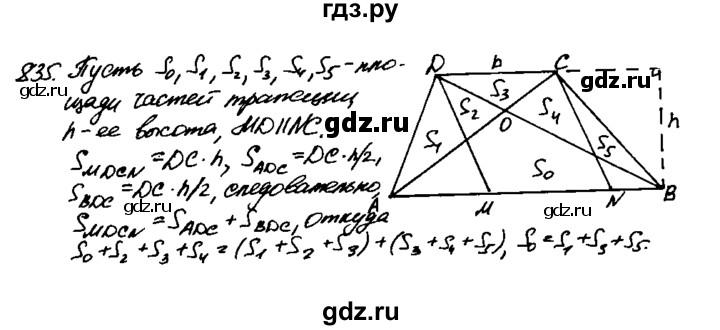 гдз.ру
835. Пусть S₀, S₁, S₂, S₃, S₄, S₅ - пло-
щади частей трапеции,
h - ее высота, MD||NC.
S_MDCN = DC·h, S_ADC = DC·h/2,
S_BDC = DC·h/2, следовательно,
S_MDCN = S_ADC + S_BDC, откуда
S₀+S₂+S₃+S₄ = (S₁+S₂+S₃)+(S₃+S₄+S₅), S₀=S₁+S₃+S₅.
D b C
S₃
S₂ S₄
O
h
S₁ S₅
S₀
A M N B
gdz.ru
gdz.ru
gdz.ru
gdz.ru
gdz.ru
gdz.ru
gdz.ru